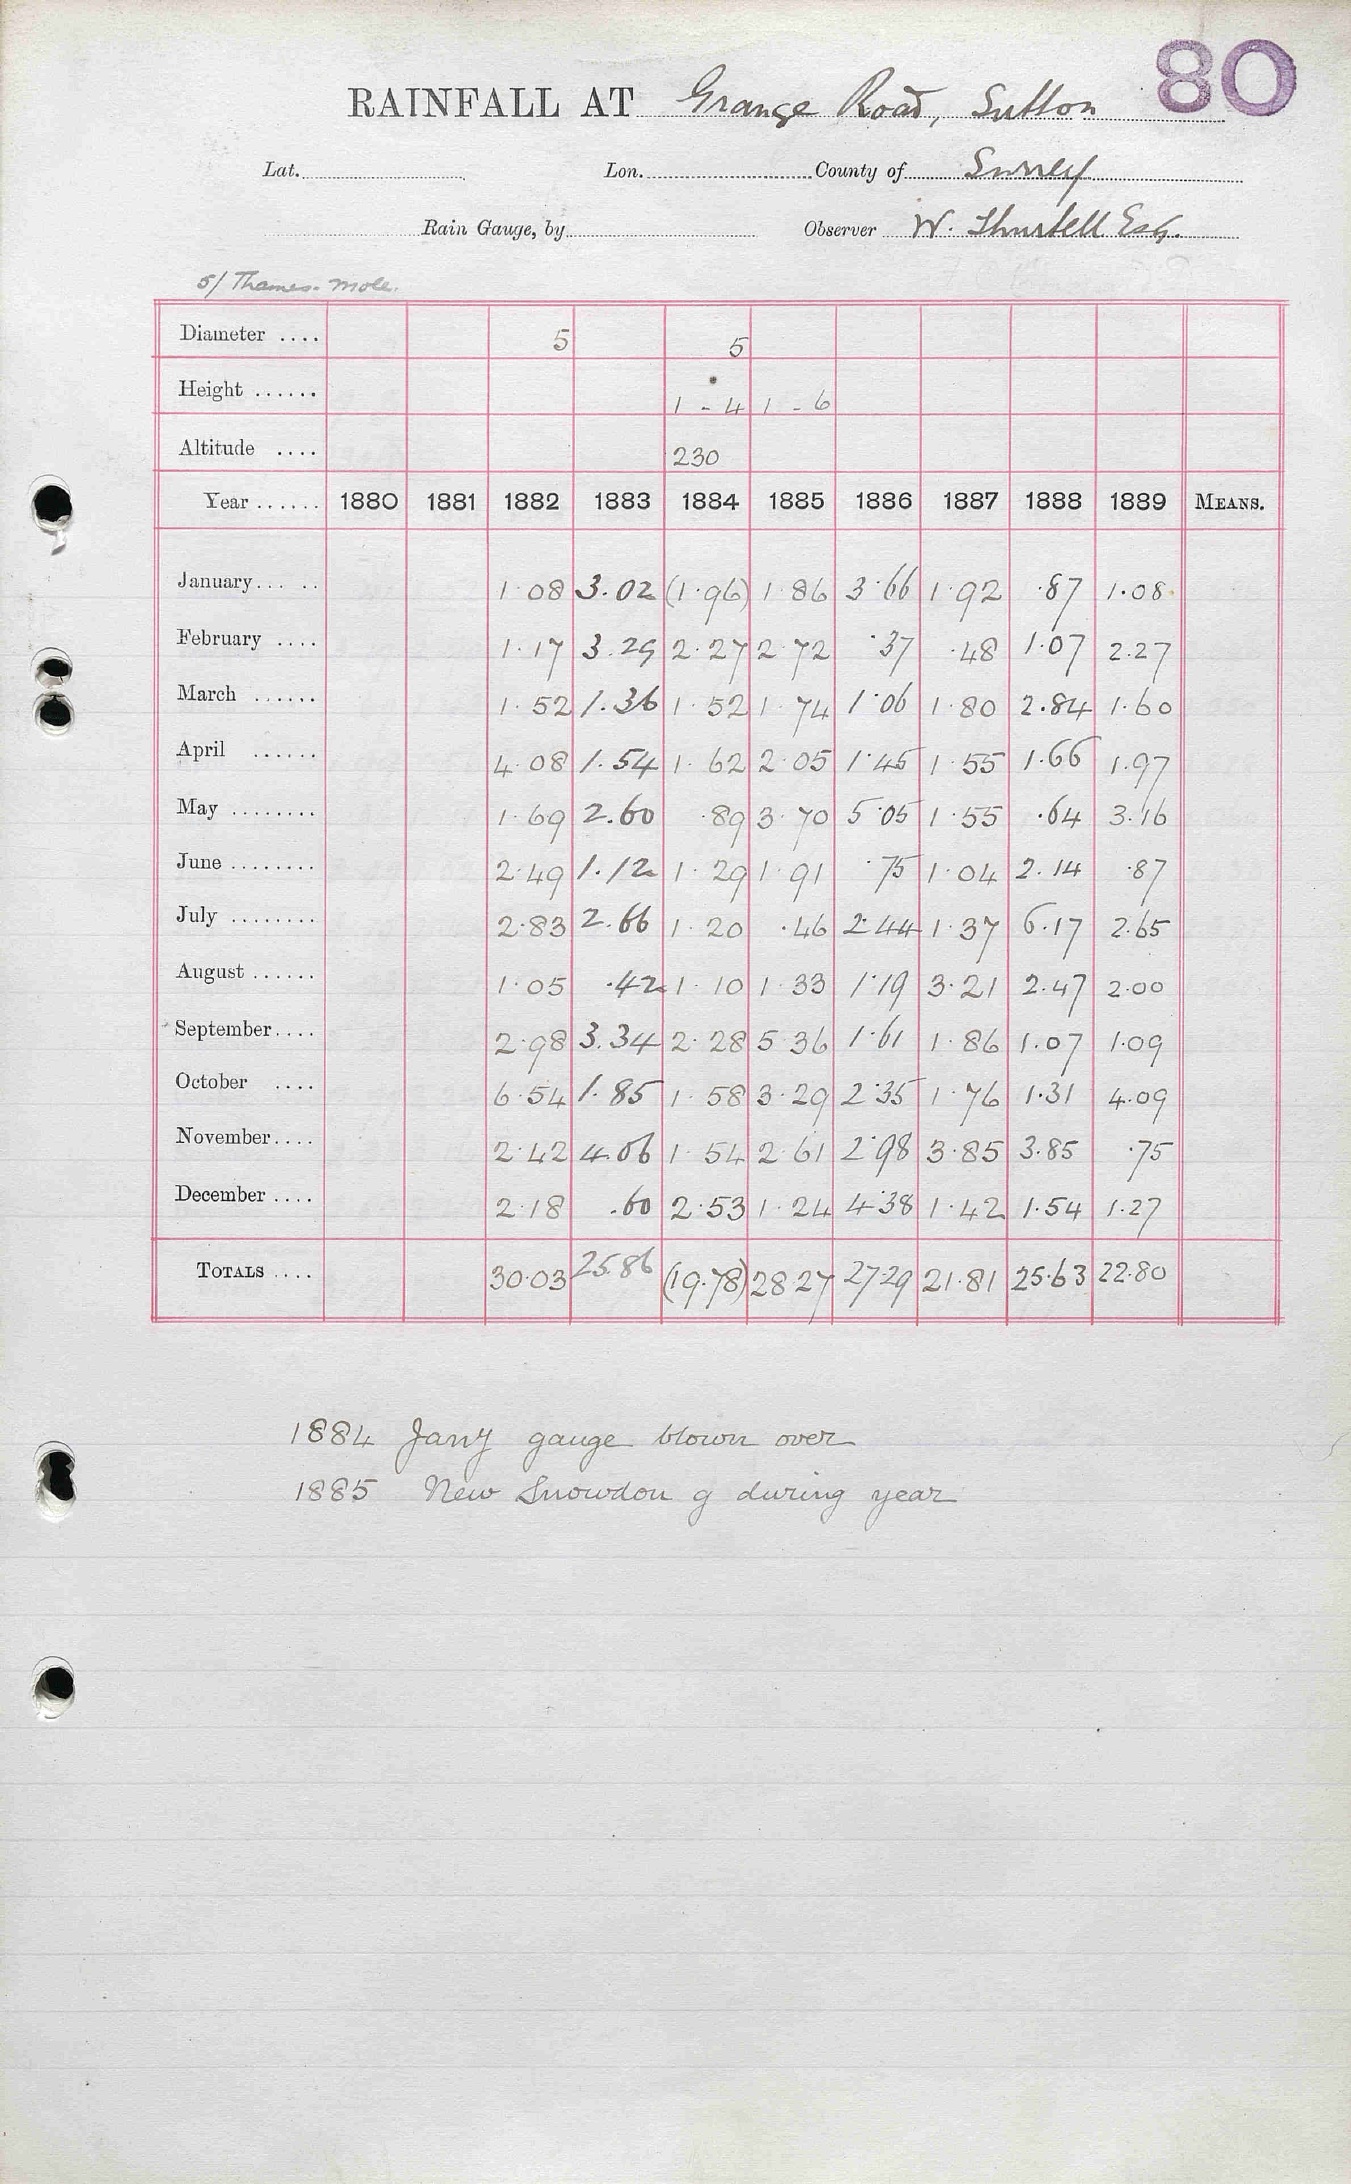 80
RAINFALL AT Grange Road, Sutton
Lat. Lon. County of Surrey
Rain Gauge, by Observer W. Thurtell Esq.
5/ Thames. Mole.
Diameter .... 5 5
Height ...... 1 - 4 1 - 6
Altitude .... 230
Year ...... 1880 1881 1882 1883 1884 1885 1886 1887 1888 1889 MEANS.
January.... .. 1.08 3.02 (1.96) 1.86 3.66 1.92 .87 1.08
February .... 1.17 3.29 2.27 2.72 .37 .48 1.07 2.27
March ...... 1.52 1.36 1.52 1.74 1.06 1.80 2.84 1.60
April ...... 4.08 1.54 1.62 2.05 1.45 1.55 1.66 1.97
May ........ 1.69 2.60 .89 3.70 5.05 1.55 .64 3.16
June ........ 2.49 1.12 1.29 1.91 .75 1.04 2.14 .87
July ........ 2.83 2.66 1.20 .46 2.44 1.37 6.17 2.65
August ...... 1.05 .42 1.10 1.33 1.19 3.21 2.47 2.00
September.... 2.98 3.34 2.28 5.36 1.61 1.86 1.07 1.09
October .... 6.54 1.85 1.58 3.29 2.35 1.76 1.31 4.09
November.... 2.42 4.06 1.54 2.61 2.98 3.85 3.85 .75
December .... 2.18 .60 2.53 1.24 4.38 1.42 1.54 1.27
TOTALS .... 30.03 25.86 (19.78) 28.27 27.29 21.81 25.63 22.80
1884 Jany gauge blown over
1885 New Snowdon g during year